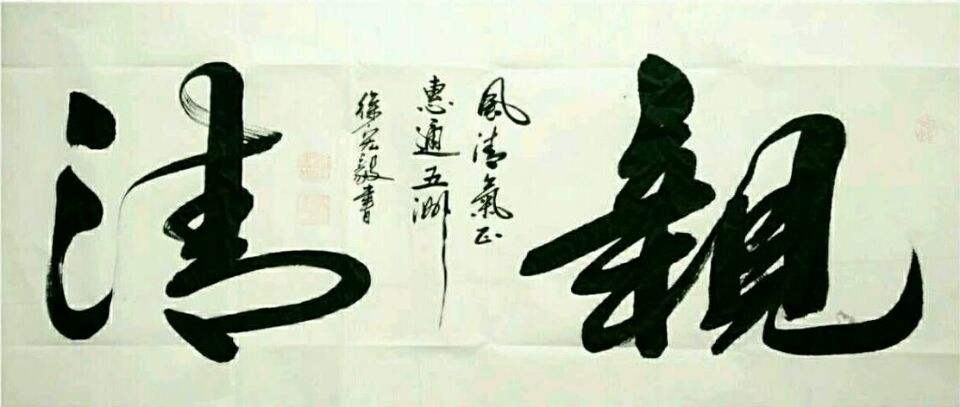 親清
風清氣正
惠通五洲
徐宏毅書